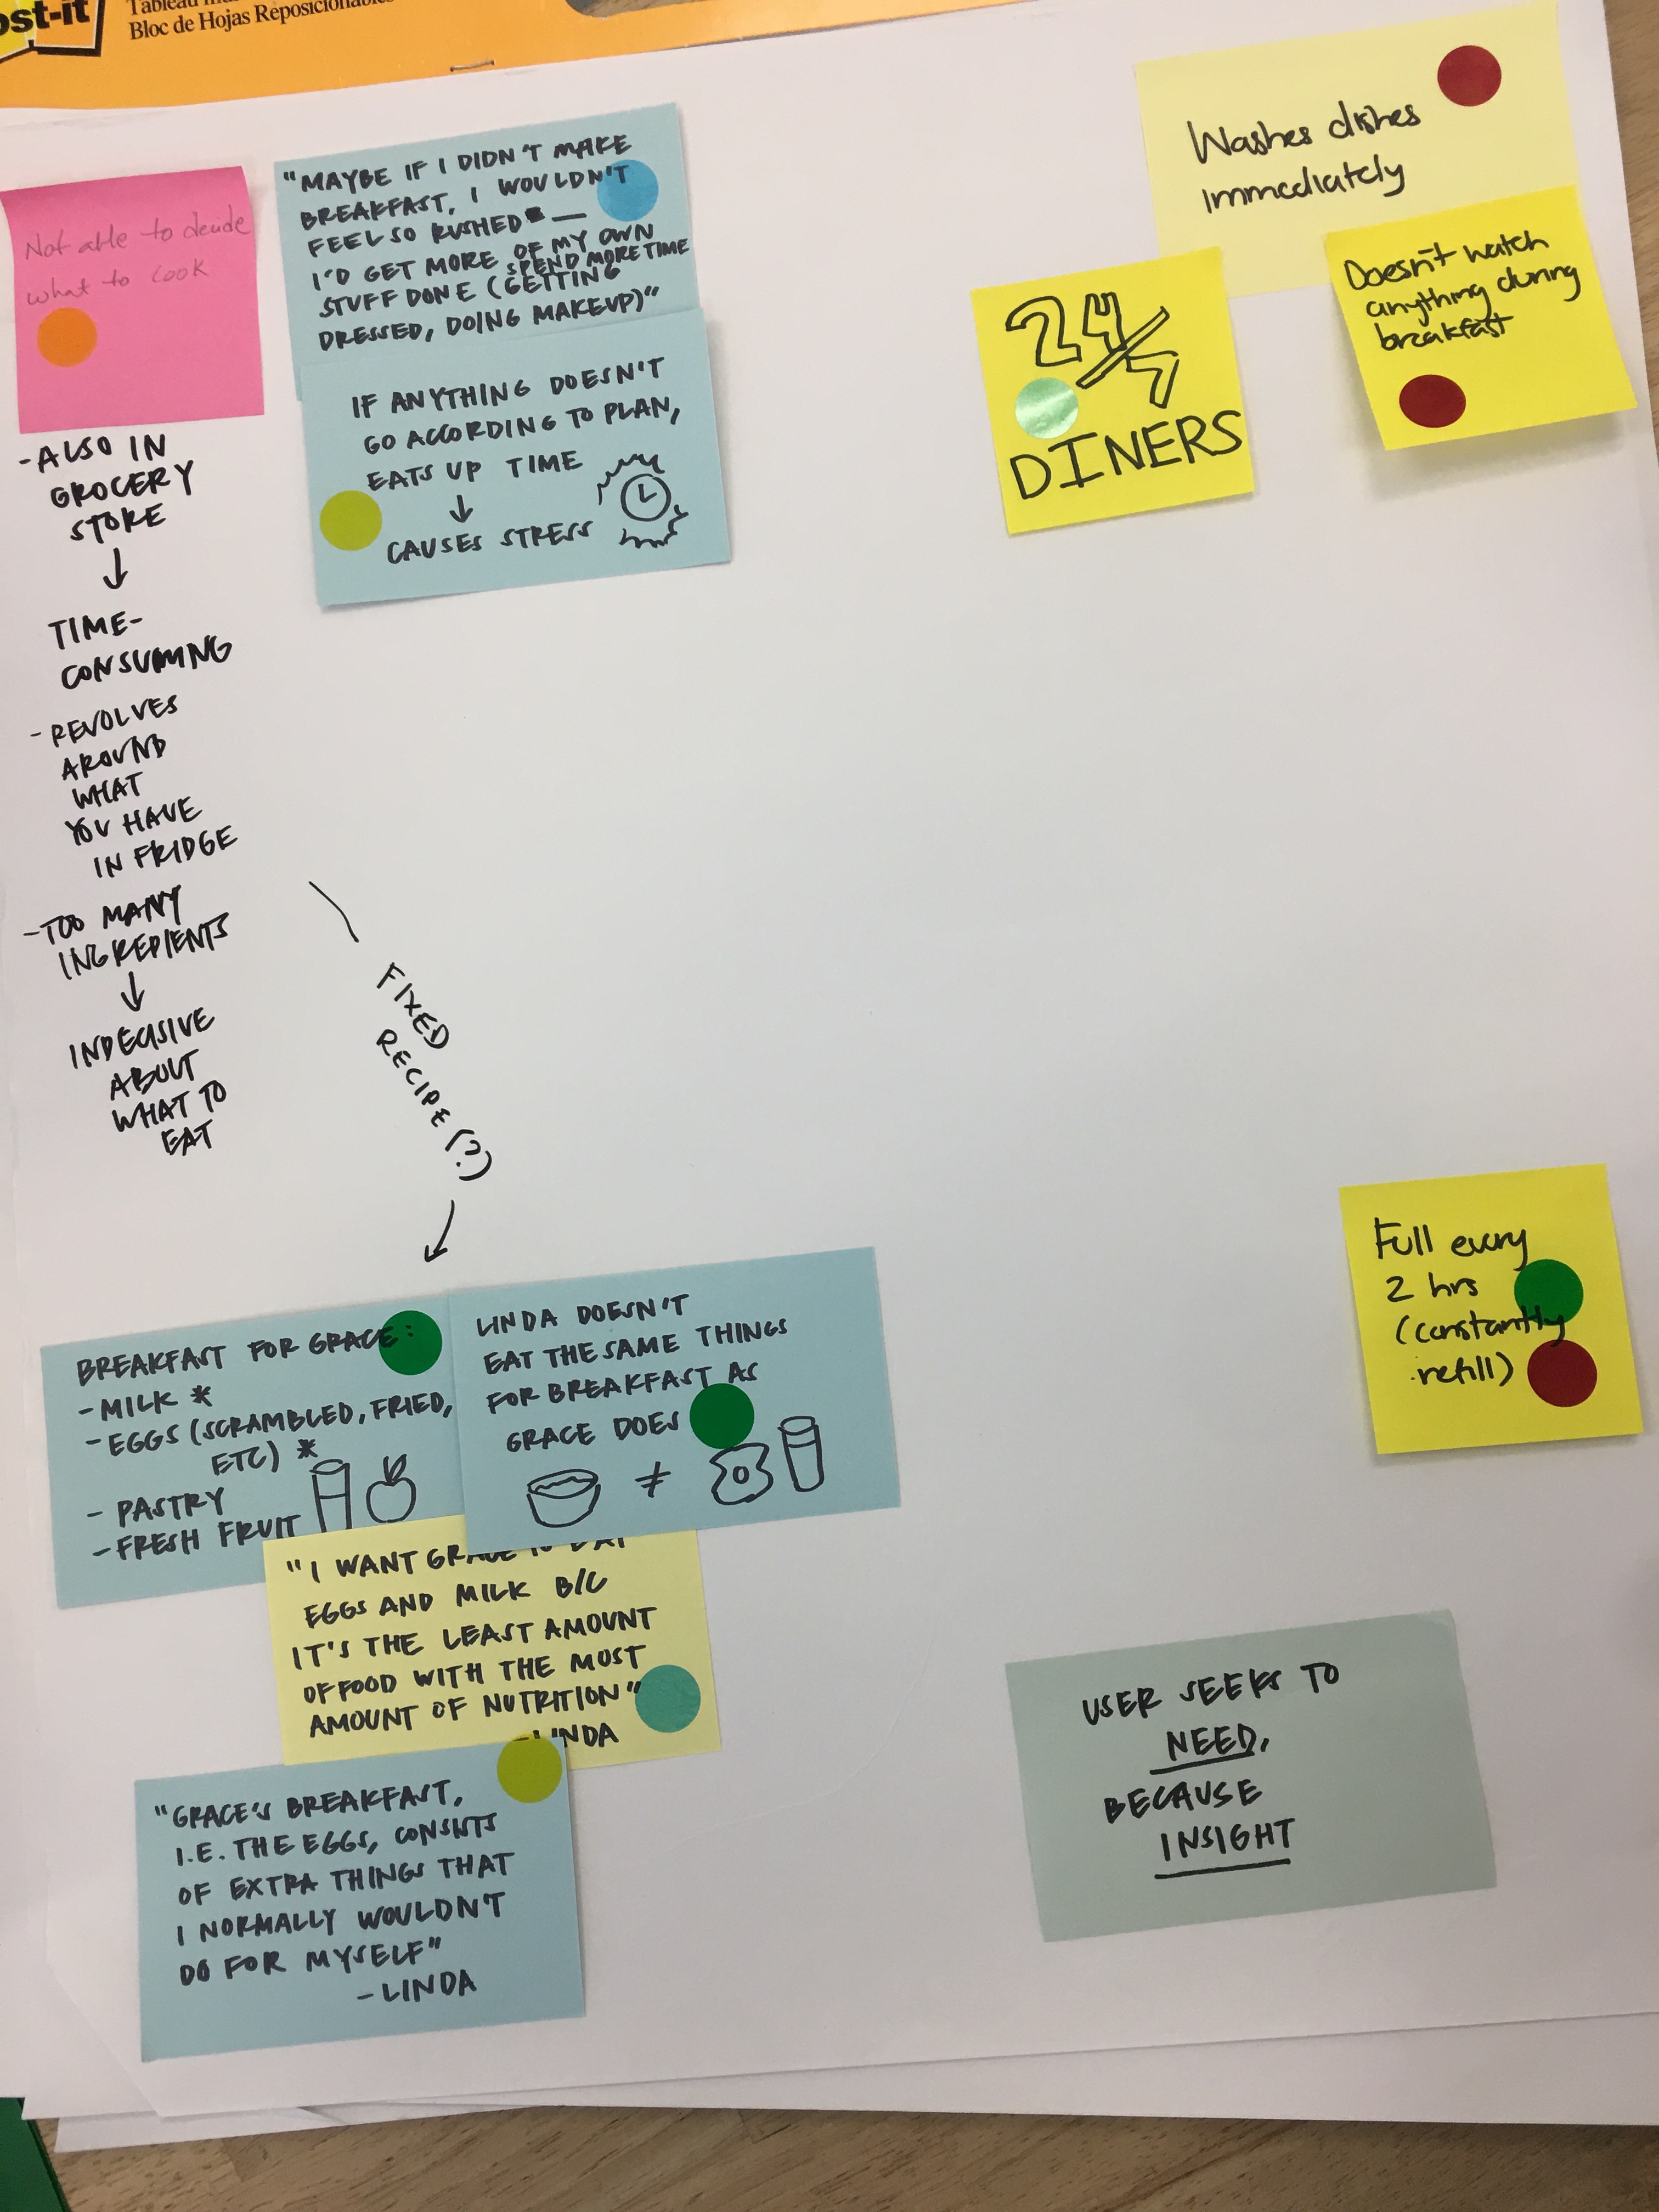 ost-it
Bloc de Hojas Reposicionables
Not able to decide
what to cook
- ALSO IN
GROCERY
STORE
↓
TIME-
CONSUMING
- REVOLVES
AROUND
WHAT
YOU HAVE
IN FRIDGE
- TOO MANY
INGREDIENTS
↓
INDECISIVE
ABOUT
WHAT TO
EAT
"MAYBE IF I DIDN'T MAKE
BREAKFAST, I WOULDN'T
FEEL SO RUSHED —
I'D GET MORE OF MY OWN
SPEND MORE TIME
STUFF DONE (GETTING
DRESSED, DOING MAKEUP)"
IF ANYTHING DOESN'T
GO ACCORDING TO PLAN,
EATS UP TIME
↓
CAUSES STRESS
24/7
DINERS
Washes dishes
immediately
Doesn't watch
anything during
breakfast
FIXED
RECIPE (?)
BREAKFAST FOR GRACE:
- MILK *
- EGGS (SCRAMBLED, FRIED,
ETC) *
- PASTRY
- FRESH FRUIT
LINDA DOESN'T
EAT THE SAME THINGS
FOR BREAKFAST AS
GRACE DOES
≠
"I WANT GRACE TO EAT
EGGS AND MILK B/C
IT'S THE LEAST AMOUNT
OF FOOD WITH THE MOST
AMOUNT OF NUTRITION"
- LINDA
"GRACE'S BREAKFAST,
I.E. THE EGGS, CONSISTS
OF EXTRA THINGS THAT
I NORMALLY WOULDN'T
DO FOR MYSELF"
- LINDA
Full every
2 hrs
(constantly
refill)
USER SEEKS TO
NEED,
BECAUSE
INSIGHT